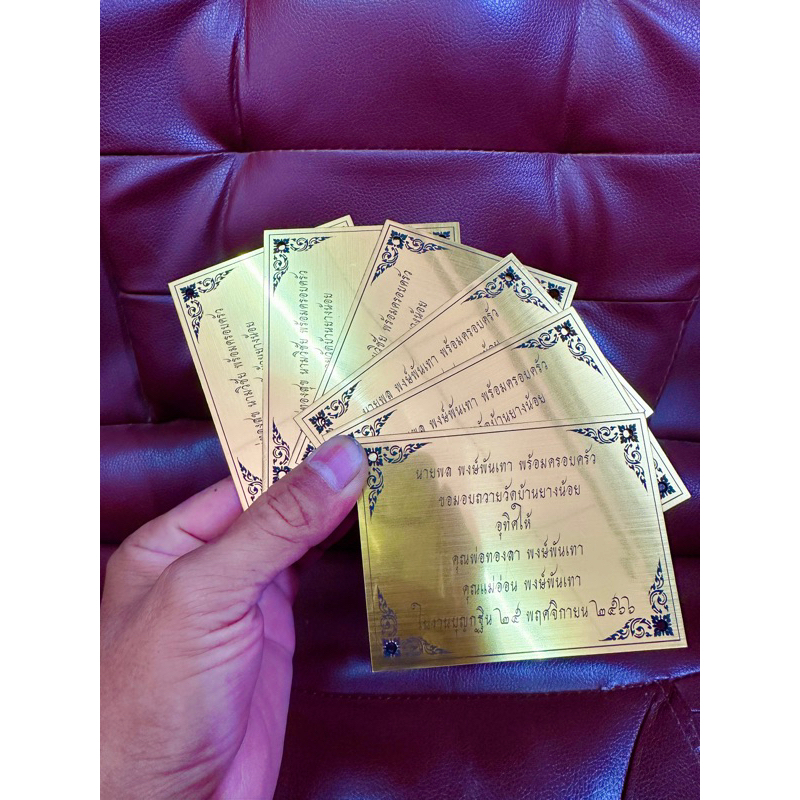 นายพล พงษ์พันเทา พร้อมครอบครัว
ขอมอบถวายวัดบ้านยางน้อย
อุทิศให้
คุณพ่อทองดา พงษ์พันเทา
คุณแม่อ่อน พงษ์พันเทา
ในงานบุญกฐิน ๒๕ พฤศจิกายน ๒๕๖๖
พล พงษ์พันเทา พร้อมครอบครัว
วัดบ้านยางน้อย
นายพล พงษ์พันเทา พร้อมครอบครัว
น้อย
วิชัย พร้อมครอบครัว
ยางน้อย
นายวิชัย พร้อมครอบครัว
วัดบ้านยางน้อย
นายวิชัย พร้อมครอบครัว
บ้านยางน้อย